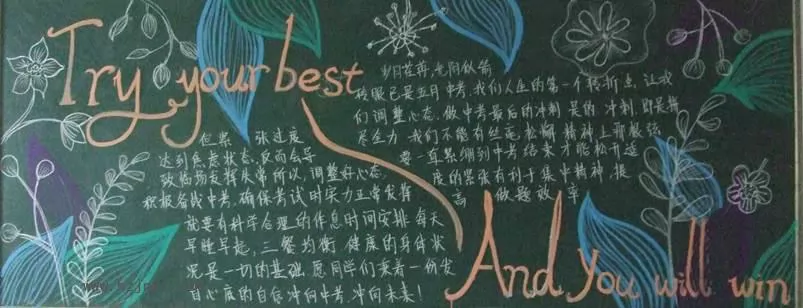 Try your best
岁月荏苒,光阴似箭
转眼已是五月中考,我们人生的第一个转折点,让我
们调整心态,做中考最后的冲刺 是的 冲刺 即是拼
尽全力 我们不能有丝毫松懈 精神上那根弦
要一直紧绷到中考结束才能松开适
度的紧张有利于集中精神,提
高 做题效 率
但紧 张过度
达到焦虑状态,反而会导
致临场发挥失常所以,调整好心态,
积极备战中考,确保考试时实力正常发挥
就要有科学合理的作息时间安排 每天
早睡早起,三餐均衡 健康的身体状
况是一切的基础 愿同学们秉着一份发
自心底的自信 冲向中考,冲向未来!
And You will win